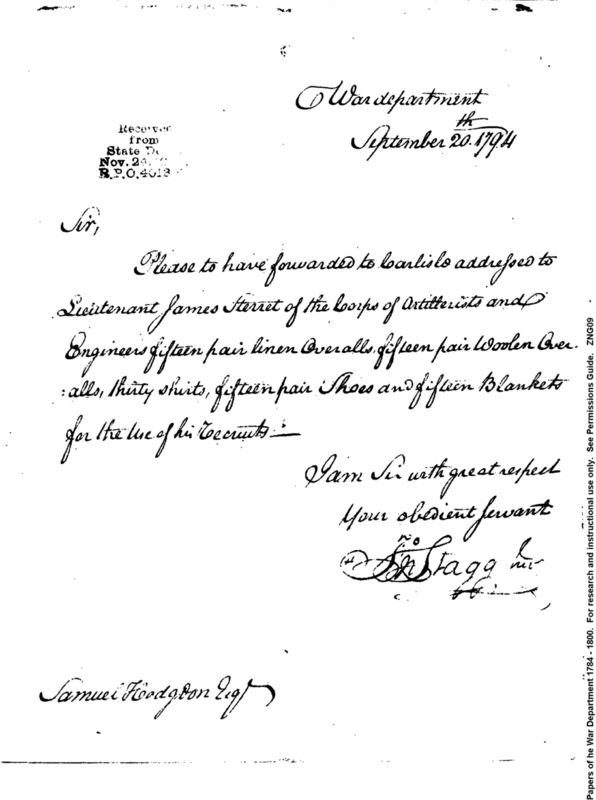 War department
September 20.th 1794
Received
from
State
Nov. 2
R.P.O. 4013
Sir,
Please to have forwarded to Carlisle addressed to
Lieutenant James Sterret of the Corps of Artillerists and
Engineers fifteen pair linen Overalls, fifteen pair Woolen Over
:alls, thirty shirts, fifteen pair Shoes and fifteen Blankets
for the Use of his Recruits.—
I am Sir with great respect
Your obedient servant
Jno Stagg Jnr
Samuel Hodgdon Esqr
Papers of he War Department 1784 - 1800. For research and instructional use only. See Permissions Guide. ZNG09